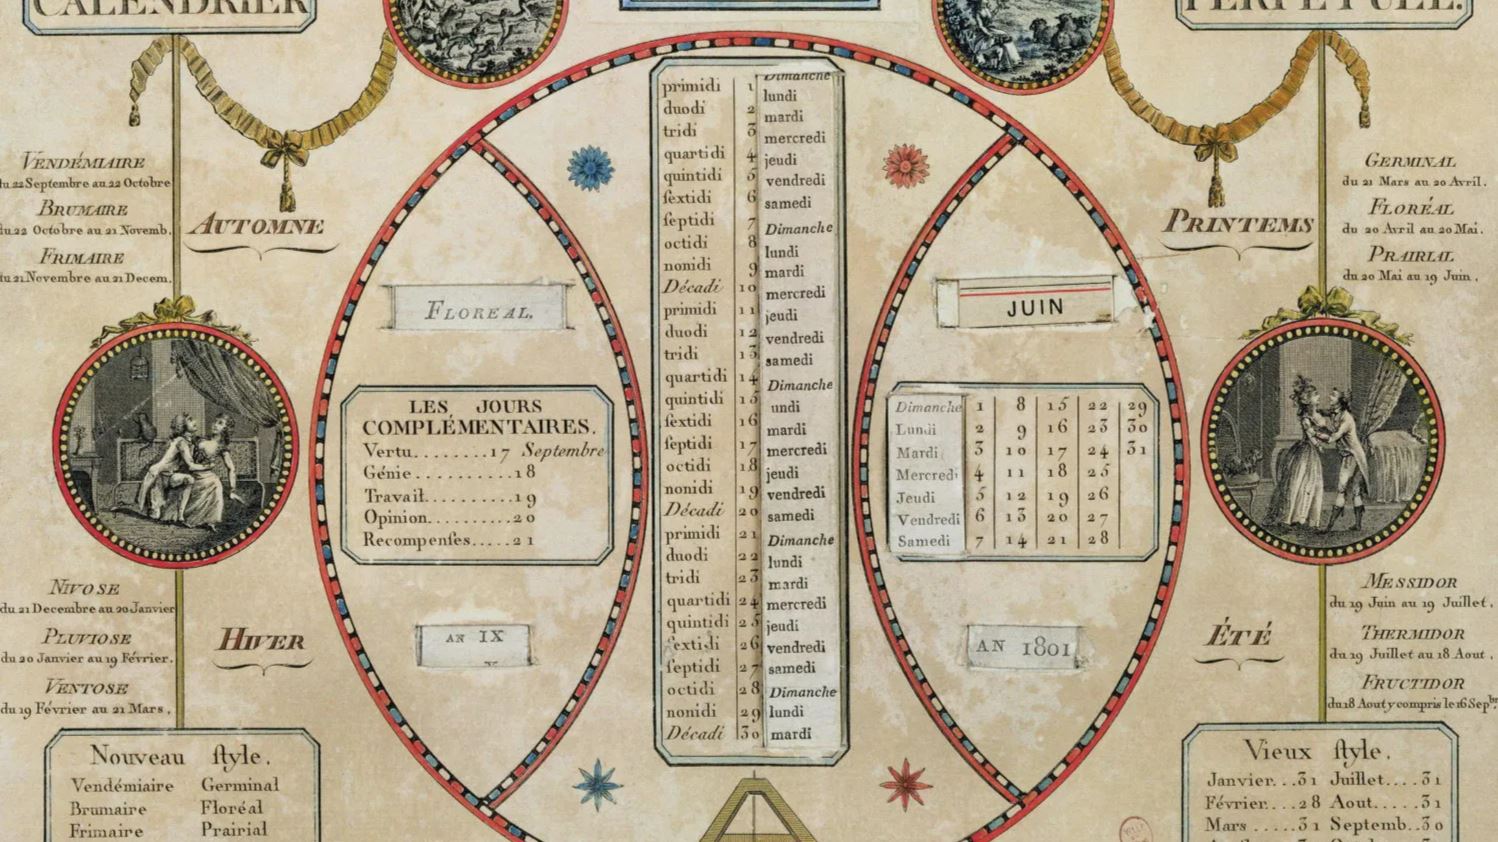 CALENDRIER
PERPÉTUEL.
VENDÉMIAIRE
du 22 Septembre au 22 Octobre
BRUMAIRE
du 22 Octobre au 21 Novemb.
FRIMAIRE
du 21 Novembre au 21 Decem.
AUTOMNE
NIVOSE
du 21 Decembre au 20 Janvier
PLUVIOSE
du 20 Janvier au 19 Février.
VENTOSE
du 19 Février au 21 Mars.
HIVER
Nouveau ſtyle.
Vendémiaire Germinal
Brumaire Floréal
Frimaire Prairial
FLOREAL.
LES JOURS
COMPLÉMENTAIRES.
Vertu........17 Septembre
Génie...........18
Travail..........19
Opinion..........20
Recompenſes.....21
AN IX
primidi 1 Dimanche
duodi 2 lundi
tridi 3 mardi
quartidi 4 mercredi
quintidi 5 jeudi
ſextidi 6 vendredi
ſeptidi 7 samedi
octidi 8 Dimanche
nonidi 9 lundi
Décadi 10 mardi
primidi 11 mercredi
duodi 12 jeudi
tridi 13 vendredi
quartidi 14 samedi
quintidi 15 Dimanche
ſextidi 16 undi
ſeptidi 17 mardi
octidi 18 mercredi
nonidi 19 jeudi
Décadi 20 vendredi
primidi 21 samedi
duodi 22 Dimanche
tridi 23 lundi
quartidi 24 mardi
quintidi 25 mercredi
ſextidi 26 jeudi
ſeptidi 27 vendredi
octidi 28 samedi
nonidi 29 Dimanche
Décadi 30 lundi
mardi
JUIN
Dimanche 1 8 15 22 29
Lundi 2 9 16 23 30
Mardi 3 10 17 24 31
Mercredi 4 11 18 25
Jeudi 5 12 19 26
Vendredi 6 13 20 27
Samedi 7 14 21 28
AN 1801
GERMINAL
du 21 Mars au 20 Avril.
FLORÉAL
du 20 Avril au 20 Mai.
PRAIRIAL
du 20 Mai au 19 Juin.
PRINTEMS
MESSIDOR
du 19 Juin au 19 Juillet.
THERMIDOR
du 19 Juillet au 18 Aout.
FRUCTIDOR
du 18 Aout y compris le 16 Sepbre
ÉTÉ
Vieux ſtyle.
Janvier...31 Juillet....31
Février...28 Aout.....31
Mars.....31 Septemb..30